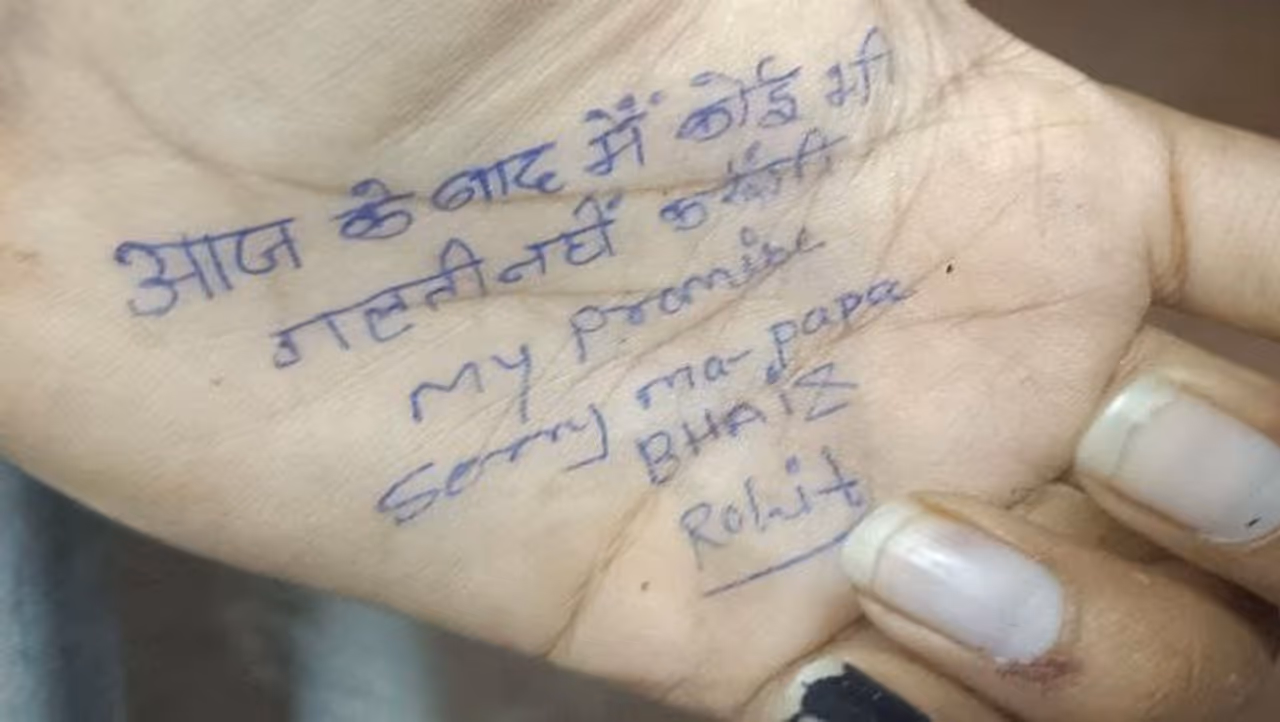 आज के बाद में कोई भी
गलती नहीं करूंगी
My promise
Sorry ma-papa
BHAIZ
Rohit